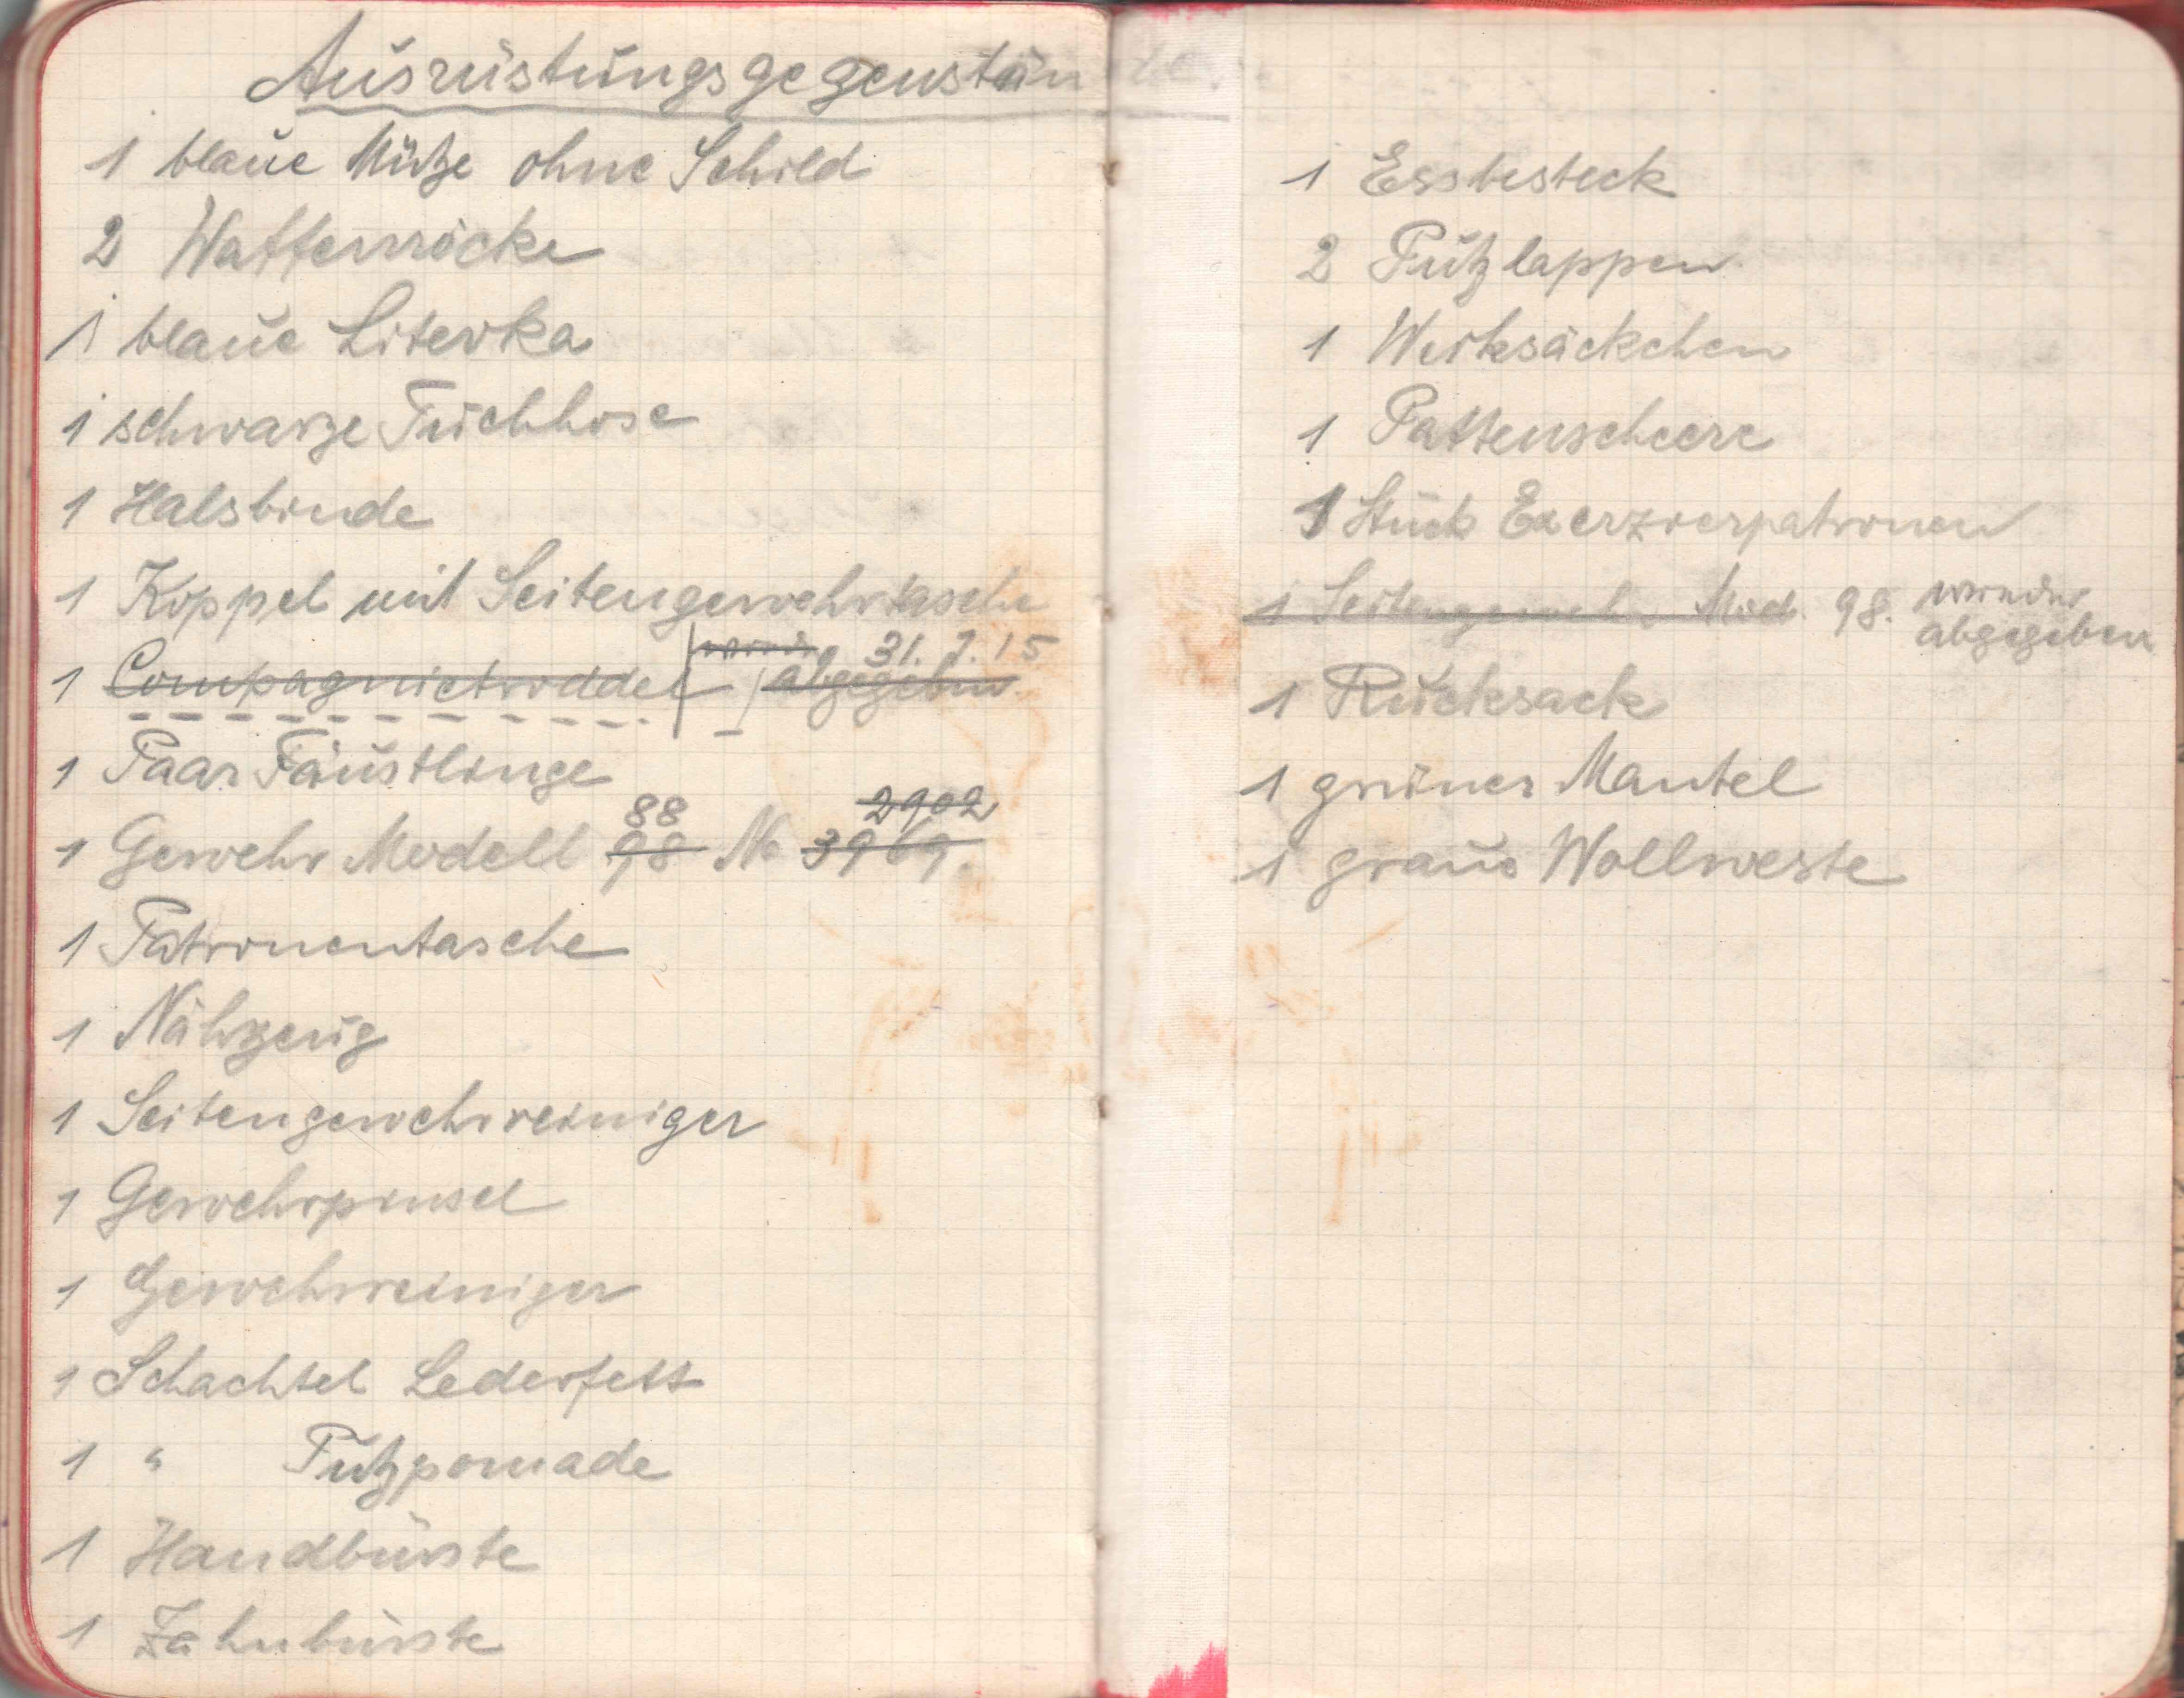 Ausrüstungsgegenstände.
1 blaue Mütze ohne Schild
2 Waffenröcke
1 blaue Litevka
1 schwarze Tuchhose
1 Halsbinde
1 Koppel mit Seitengewehrtasche
1 Compagnietroddel abgegeben 31. 7. 15
1 Paar Fäustlinge
88 2902
1 Gewehr Modell 98 No 3969.
1 Patronentasche
1 Nähzeug
1 Seitengewehrreiniger
1 Gewehrpinsel
1 Gewehrreiniger
1 Schachtel Lederfett
1 " Putzpomade
1 Handbürste
1 Zahnbürste
1 Essbesteck
2 Putzlappen
1 Werksäckchen
1 Pattenscheere
Stück Exerzierpatronen
1 Seitengewehr Mod. 98. wieder
abgegeben
1 Rucksack
1 grüner Mantel
1 graue Wollweste